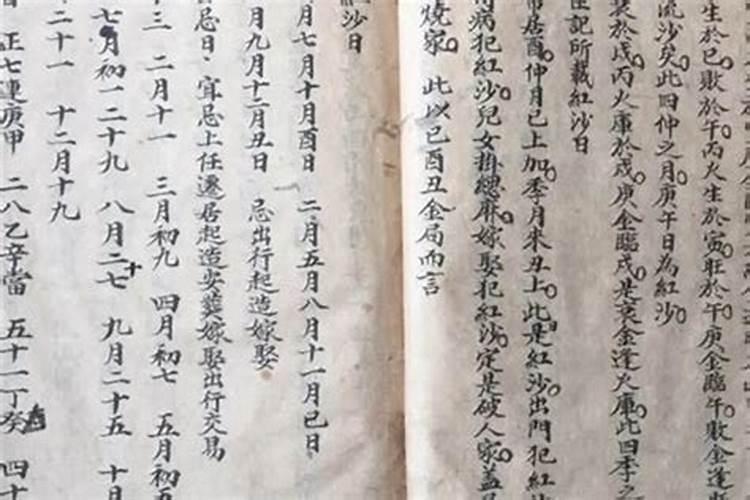 生於巳敗於午丙火生於寅旺於午庚金臨午敗金逢
流沙矣此四仲之月庚午日為紅沙
於戌丙火庫於戌庚金臨戌是衰金逢火庫此四季之
記所載紅沙日
居酉仲月已上加季月未丑上此是紅沙出門犯紅
病犯紅沙兒女掛緦麻嫁娶犯紅沙定是破人家蓋
燒家 此以巳酉丑金局而言
紅沙日
月七月十月酉日 二月五月八月十一月巳日
月九月十二月丑日 忌出行起造嫁娶
忌日 宜忌上任遷居起造安葬嫁娶出行交易
三 二月十一 三月初九 四月初七 五月初五
七月初一二十九 八月二十七 九月二十五 十月
二十一 十二月十九
正七連庚甲 二八乙辛當 五十一丁癸 四十